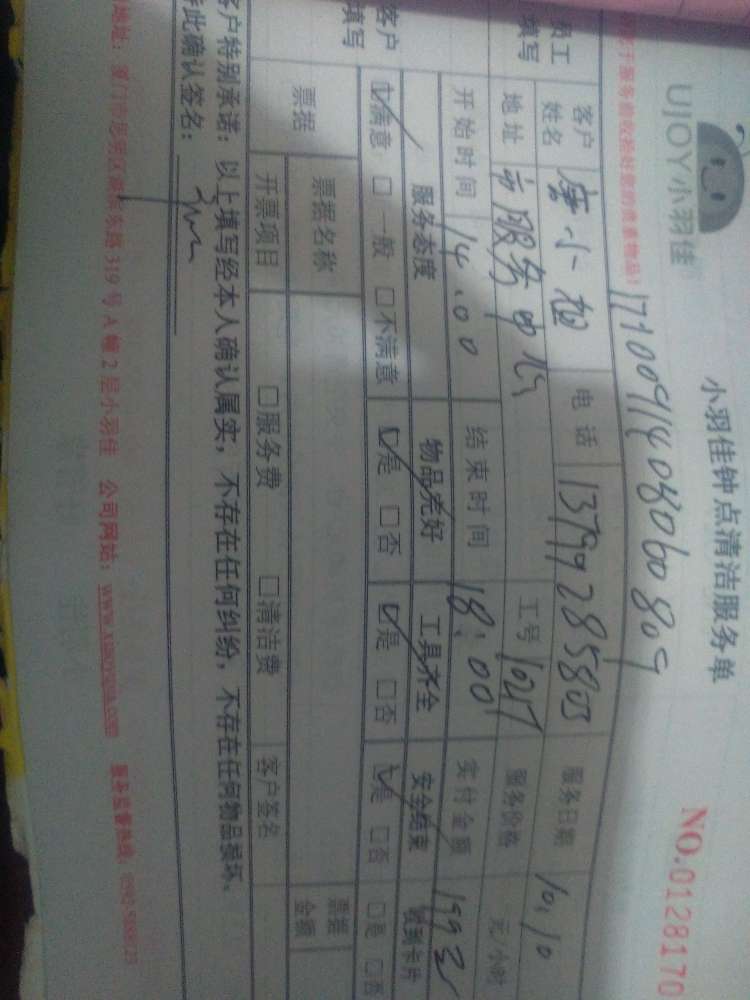 UJOY小羽佳
小羽佳钟点清洁服务单
NO.0128170
员工填写
客户姓名 唐小姐 电话 13799285803 服务日期 10.10
地址 市服务中心 工号 1027 服务价格 元/小时
开始时间 14.00 结束时间 18:00 实付金额
客户填写
服务态度 物品完好 工具齐全 安全结束 收到卡片
满意 □一般 □不满意 是 □否 是 □否 是 □否 □是 □否
票据 票据名称 票据金额
开票项目 □服务费 □清洁费 客户签名
客户特别承诺：以上填写经本人确认属实，不存在任何纠纷，不存在任何物品损坏、
特此确认签名：
319号A幢2层小羽佳 公司网站：